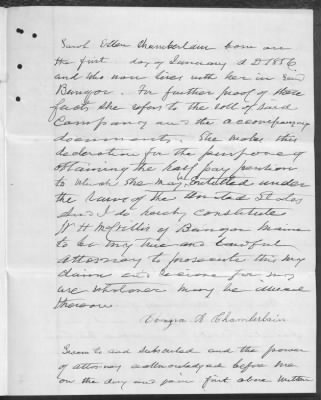 Sarah Ellen Chamberlain born on
the first day of January A D 1856
and who now lives with her in said
Bangor. For further proof of these
facts she refers to the roll of said
Company and the accompanying
documents. She makes this
declaration for the purpose of
obtaining the half pay pension
to which she may entitled under
the Laws of the United States
And I do hereby constitute
W H McCrillis of Bangor Maine
to be my true and lawful
attorney to prosecute this my
claim and receive for me
whatever may be
thereon
Chamberlain
Sworn to and subscribed and the power
of attorney acknowledged before me
on the day and year first above written